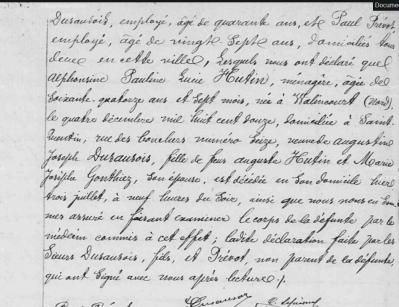 Docume
Dusausois, employé, âgé de quarante ans, et Paul Prévot,
employé, âgé de vingt sept ans, domiciliés tous
deux en cette ville, lesquels nous ont déclaré que
Alphonsine Pauline Lucie Hutin, ménagère, âgée de
soixante-quatorze ans et sept mois, née à Walincourt (Nord).
le quatre décembre mil huit cent douze, domiciliée à Saint-
Quentin, rue des Bouchers numéro seize, veuve Augustin
Joseph Dusausois, fille de feus Auguste Hutin et Marie
Josèphe Gonthiez, son épouse, est décédée en son domicile hier
trois juillet, à neuf heures du soir, ainsi que nous nous en som-
mes assuré en faisant examiner le corps de la défunte par le
médecin commis à cet effet; ladite déclaration faite par les
sieurs Dusausois, fils, et Prévot, non parent de la défunte,
qui ont signé avec nous après lecture./.
Dusausois